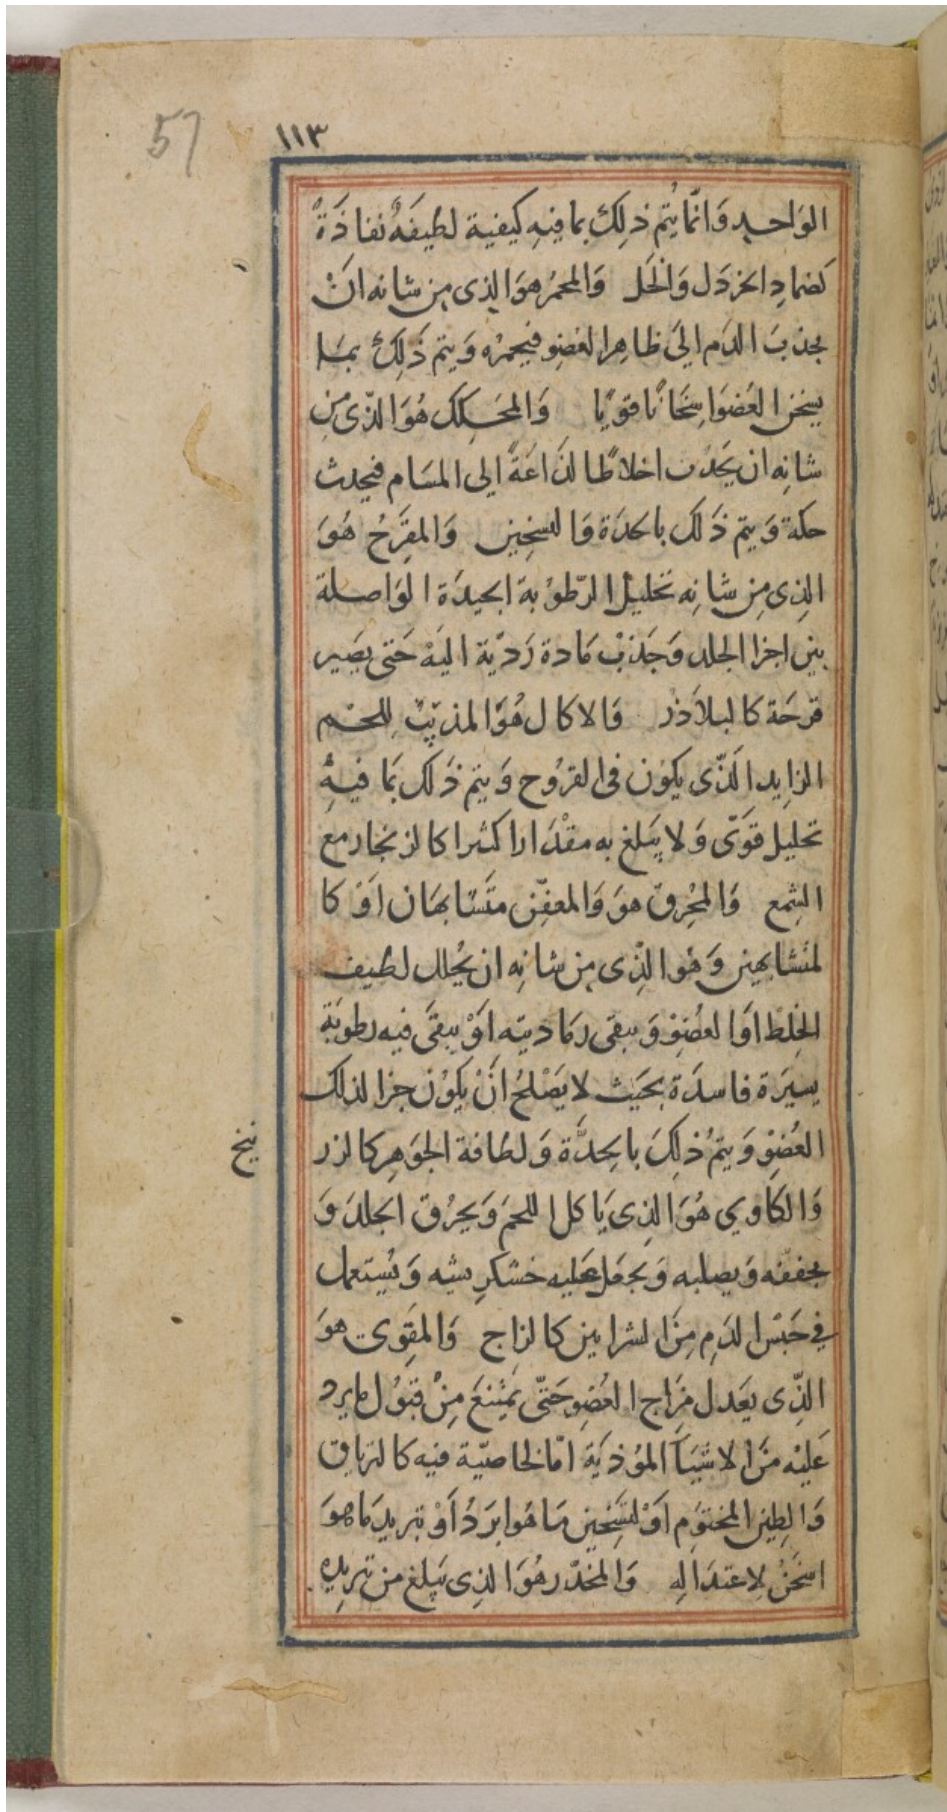 57
١١٣
الوَاحِدِ وَانّمَا يُتم ذلِكَ بمَا فيهِ كيفية لطيفَةٌ نفاذَةٌ
كَضمادِ الخردَل وَالخَل وَالمحمرُ هوَ الذى مِن شانه انْ
يجذبَ الدَم الىَ ظاهِر العضوِ فيحمرُه وَيتم ذَلِكَ بمَا
يسخن العُضوَ اسِخَانًا قويًا وَالمحَكِك هُوَ الذّى مِن
شانِه ان يَجذب اخلاطًا لذَاعَةً الى المسَام فيحدث
حكة وَيتم ذَلك بالحدَة وَالتسخين وَالمقَرِحُ هُوَ
الذِى مِن شانِه تَحليل الرّطوبة الجيدَة الوَاصلة
بين اجزا الجلد وَجَذبْ مَادة رَدّيّة اليَه حَتى يصَير
قرحَة كالبلاَذر وَالاكال هُوَ المذيبُ للحم
الزايد الَذّى يكوُن فى القرُوح وَيتم ذَلك بمَا فيهِ
تحليل قَوىّ وَلا يبلغ به مقْدَارا كثيرا كالزنجار مع
الشِمع وَالمحُرِق هوَ وَالمعفِّن متَشابهَان اَوْ كا
لمتشابهين وَهُو الذِى مِن شانِه ان يُحلل لطيف
الخِلط اوَ العضُوِ وَيبقى رمَاديته اَوْ يبقَى فيه رطوبَة
يسيَرة فاسدَة بحَيث لا يَصْلحُ انَْ يكوُن جزا لذلك
العُضوِ وَيتمُ ذلِكَ بالحِدَّة وَلطافة الجوَهِر كالزر
نيخ
وَالكَاوي هُوَ الذِى يَاكل اللحمَ وَيحرُق الجلدَ وَ
يجففه وَيصلبه وَيجعَل عَليه خشكرِيشه وَيُستعمل
فِي حَبسْ الدَمِ مِنَ الشرايين كالزاج وَالمقَوِى هوَ
الذّى يعَدل مِزَاج العُضوِ حَتّى يمَتنعَ مِنْ قبَوُل ما يرد
عَليْه مِنَ الاشيَآ المؤذيَة امّا لخاصّية فيه كالترياق
وَالطِين المختوَم اَوْ لتسَخين مَا هُوَ ابرَدُ اَوْ تبريد مَا هوَ
اسخَنُ لاعتدَالِه وَالمخدّر هُوَ الذِى يبَلغ من تبريدِه